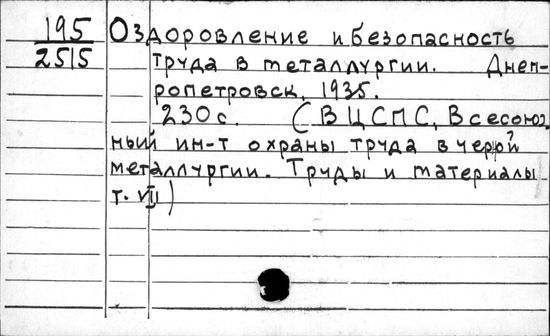 195
2515
Оздоровление и безопасность
труда в металлургии. Днеп-
ропетровск, 1935.
230 с. (ВЦСПС, Всесоюз-
ный ин-т охраны труда в черой?
металлургии. Труды и материалы
т. VII)